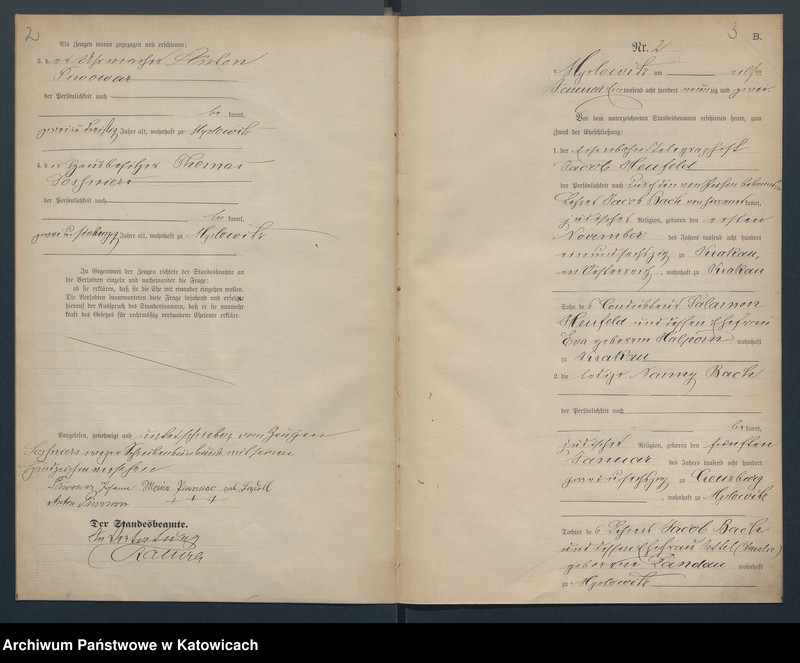 2
Als Zeugen waren zugezogen und erschienen:
3. der Uhrmacher Anton
Piwowar
der Persönlichkeit nach
be kannt,
zweiunddreißig Jahre alt, wohnhaft zu Myslowitz
4. der Hausbesitzer Thomas
der Persönlichkeit nach
be kannt,
zwei u. siebenzig Jahre alt, wohnhaft zu Myslowitz
In Gegenwart der Zeugen richtete der Standesbeamte an
die Verlobten einzeln und nacheinander die Frage:
ob sie erklären, daß sie die Ehe mit einander eingehen wollen.
Die Verlobten beantworteten diese Frage bejahend und erfolgte
hierauf der Ausspruch des Standesbeamten, daß er sie nunmehr
kraft des Gesetzes für rechtmäßig verbundene Eheleute erkläre.
Vorgelesen, genehmigt und unterschrieben vom Zeugen
wegen Schreibensunkunde mit seinem
Handzeichen versehen
Johann Maria Piwowar geb.
+ + +
Anton Piwowar
Der Standesbeamte.
In Vertretung
3
B.
Nr. 2
Myslowitz am elften
Januar tausend acht hundert neunzig und zwei
Vor dem unterzeichneten Standesbeamten erschienen heute, zum
Zweck der Eheschließung:
1. der Eisenbahntelegraphist
Jacob Heufeld
der Persönlichkeit nach durch den von Person bekannten
Lehrer Jacob Bach anerkannt,
jüdischer Religion, geboren den ersten
November des Jahres tausend acht hundert
einundsechszig zu Krakau,
in Oesterreich, wohnhaft zu Krakau
Sohn des Conducteurs Salamon
Heufeld und dessen Ehefrau
Eva geborenen Halporn wohnhaft
zu Krakau
2. die ledige Nanny Bach
der Persönlichkeit nach
be kannt,
jüdischer Religion, geboren den fünften
Januar des Jahres tausend acht hundert
zwei u. sechszig zu Creuzburg
, wohnhaft zu Myslowitz
Tochter des Lehrers Jacob Bach
und dessen Ehefrau
geborenen Landau wohnhaft
zu Myslowitz
Archiwum Państwowe w Katowicach